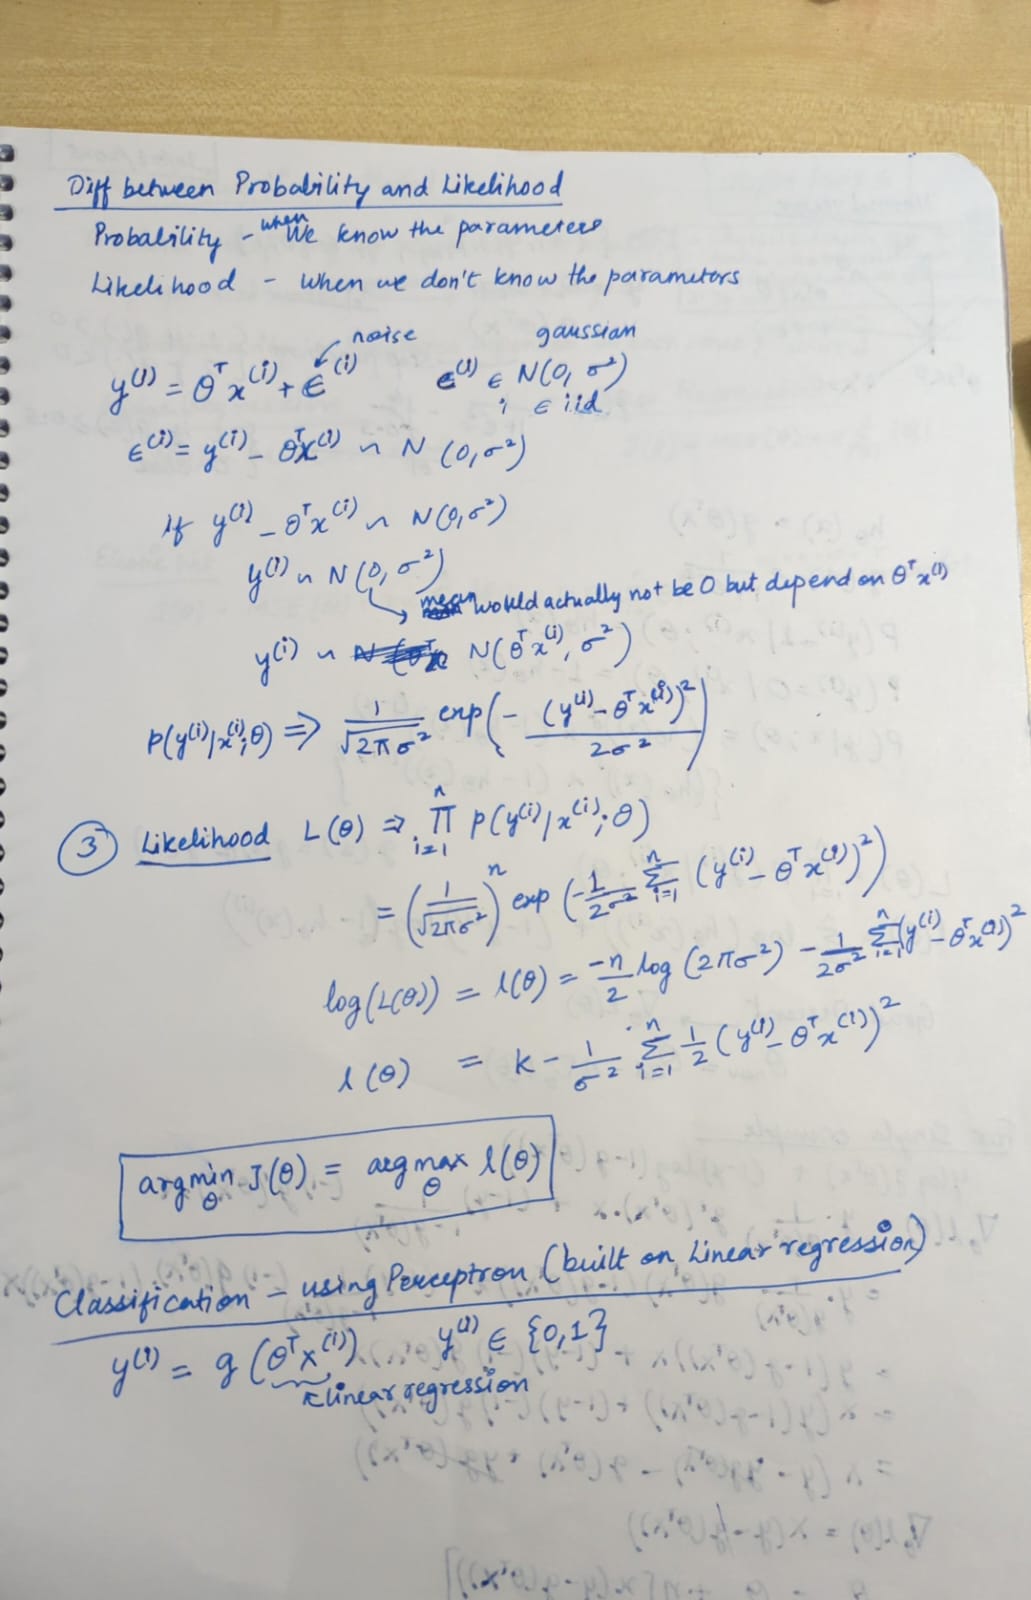 Diff between Probability and Likelihood
Probability - when We know the parameters
Likelihood - When we don't know the parameters
noise gaussian
y^(i) = θ^T x^(i) + ε^(i) ε^(i) ∈ N(0, σ²)
i ∈ iid
ε^(i) = y^(i) - θ^T x^(i) ~ N(0, σ²)
If y^(i) - θ^T x^(i) ~ N(0, σ²)
y^(i) ~ N(0, σ²)
mean would actually not be 0 but depend on θ^T x^(i)
y^(i) ~ N(θ^T x^(i), σ²)
P(y^(i)|x^(i);θ) ⇒ 1/√2πσ² exp(- (y^(i) - θ^T x^(i))² / 2σ²)
③ Likelihood L(θ) ⇒ ∏_{i=1}^{n} P(y^(i)|x^(i);θ)
= (1/√2πσ²)^n exp(-1/2σ² Σ_{i=1}^{n} (y^(i) - θ^T x^(i))²)
log(L(θ)) = l(θ) = -n/2 log(2πσ²) - 1/2σ² Σ_{i=1}^{n} (y^(i) - θ^T x^(i))²
l(θ) = K - 1/σ² Σ_{i=1}^{n} 1/2 (y^(i) - θ^T x^(i))²
argmin_θ J(θ) = argmax_θ l(θ)
Classification - using Perceptron (built on Linear regression)
y^(i) = g(θ^T x^(i)) y^(i) ∈ {0,1}
linear regression